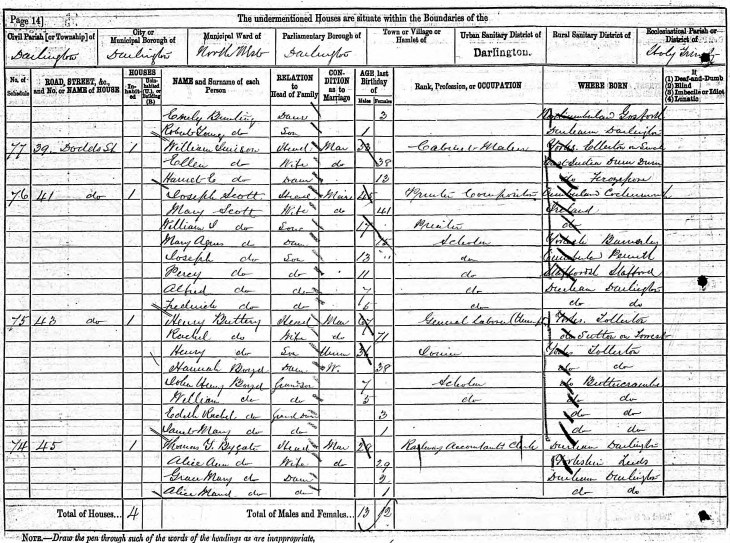 Page 14] The undermentioned Houses are situate within the Boundaries of the
Civil Parish [or Township] of City or Municipal Borough of Municipal Ward of Parliamentary Borough of Town or Village or Hamlet of Urban Sanitary District of Rural Sanitary District of Ecclesiastical Parish or District of
Darlington Darlington North West Darlington Darlington. Holy Trinity
No. of Schedule ROAD, STREET, &c., and No. or NAME of HOUSE HOUSES Inhabited Uninhabited (U.), or Building (B.) NAME and Surname of each Person RELATION to Head of Family CONDITION as to Marriage AGE last Birthday of Males Females Rank, Profession, or OCCUPATION WHERE BORN If (1) Deaf-and-Dumb (2) Blind (3) Imbecile or Idiot (4) Lunatic
Emily Bunting Daur 3 Northumberland Gosforth
Robert do Son 1 Durham Darlington
77 39 Dodds St 1 William Head Mar Cabinet Maker Yorks
Ellen do Wife do 38 East India Dum Dum
Harriet E do Daur 12 do
76 41 do 1 Joseph Scott Head Marr 45 Printer Compositor Cumberland Cockermouth
Mary Scott Wife do 41 Ireland
William do Son 17 Printer do
Mary Agnes do Daur 15 Scholar Yorksh
Joseph do Son 13 do Cumberld Penrith
Percy do do 11 do Staffordsh Stafford
Alfred do do 7 do Durham Darlington
Frederick do do 5 do do do
75 43 do 1 Henry Buttery Head Mar 67 General Labour Yorks. Tollerton
Rachel do Wife do 71 do Sutton on Forest
Henry do Son Unm Yorks Tollerton
Hannah Daur W. 38 do do
John Henry Grandson 7 Scholar do Buttercrambe
William do do 5 do do do
Edith Rachel do Grand Daur 3 do do
Mary do do 1 do do
74 45 1 Thomas Bygate Head Mar 29 Railway Accountants Clerk Durham Darlington
Alice Ann do Wife do 29 Yorkshire Leeds
Grace Mary do Daur 2 Durham Darlington
Alice Maud do do 1 do do
Total of Houses... 4 Total of Males and Females... 13 12
NOTE.—Draw the pen through such of the words of the headings as are inappropriate,